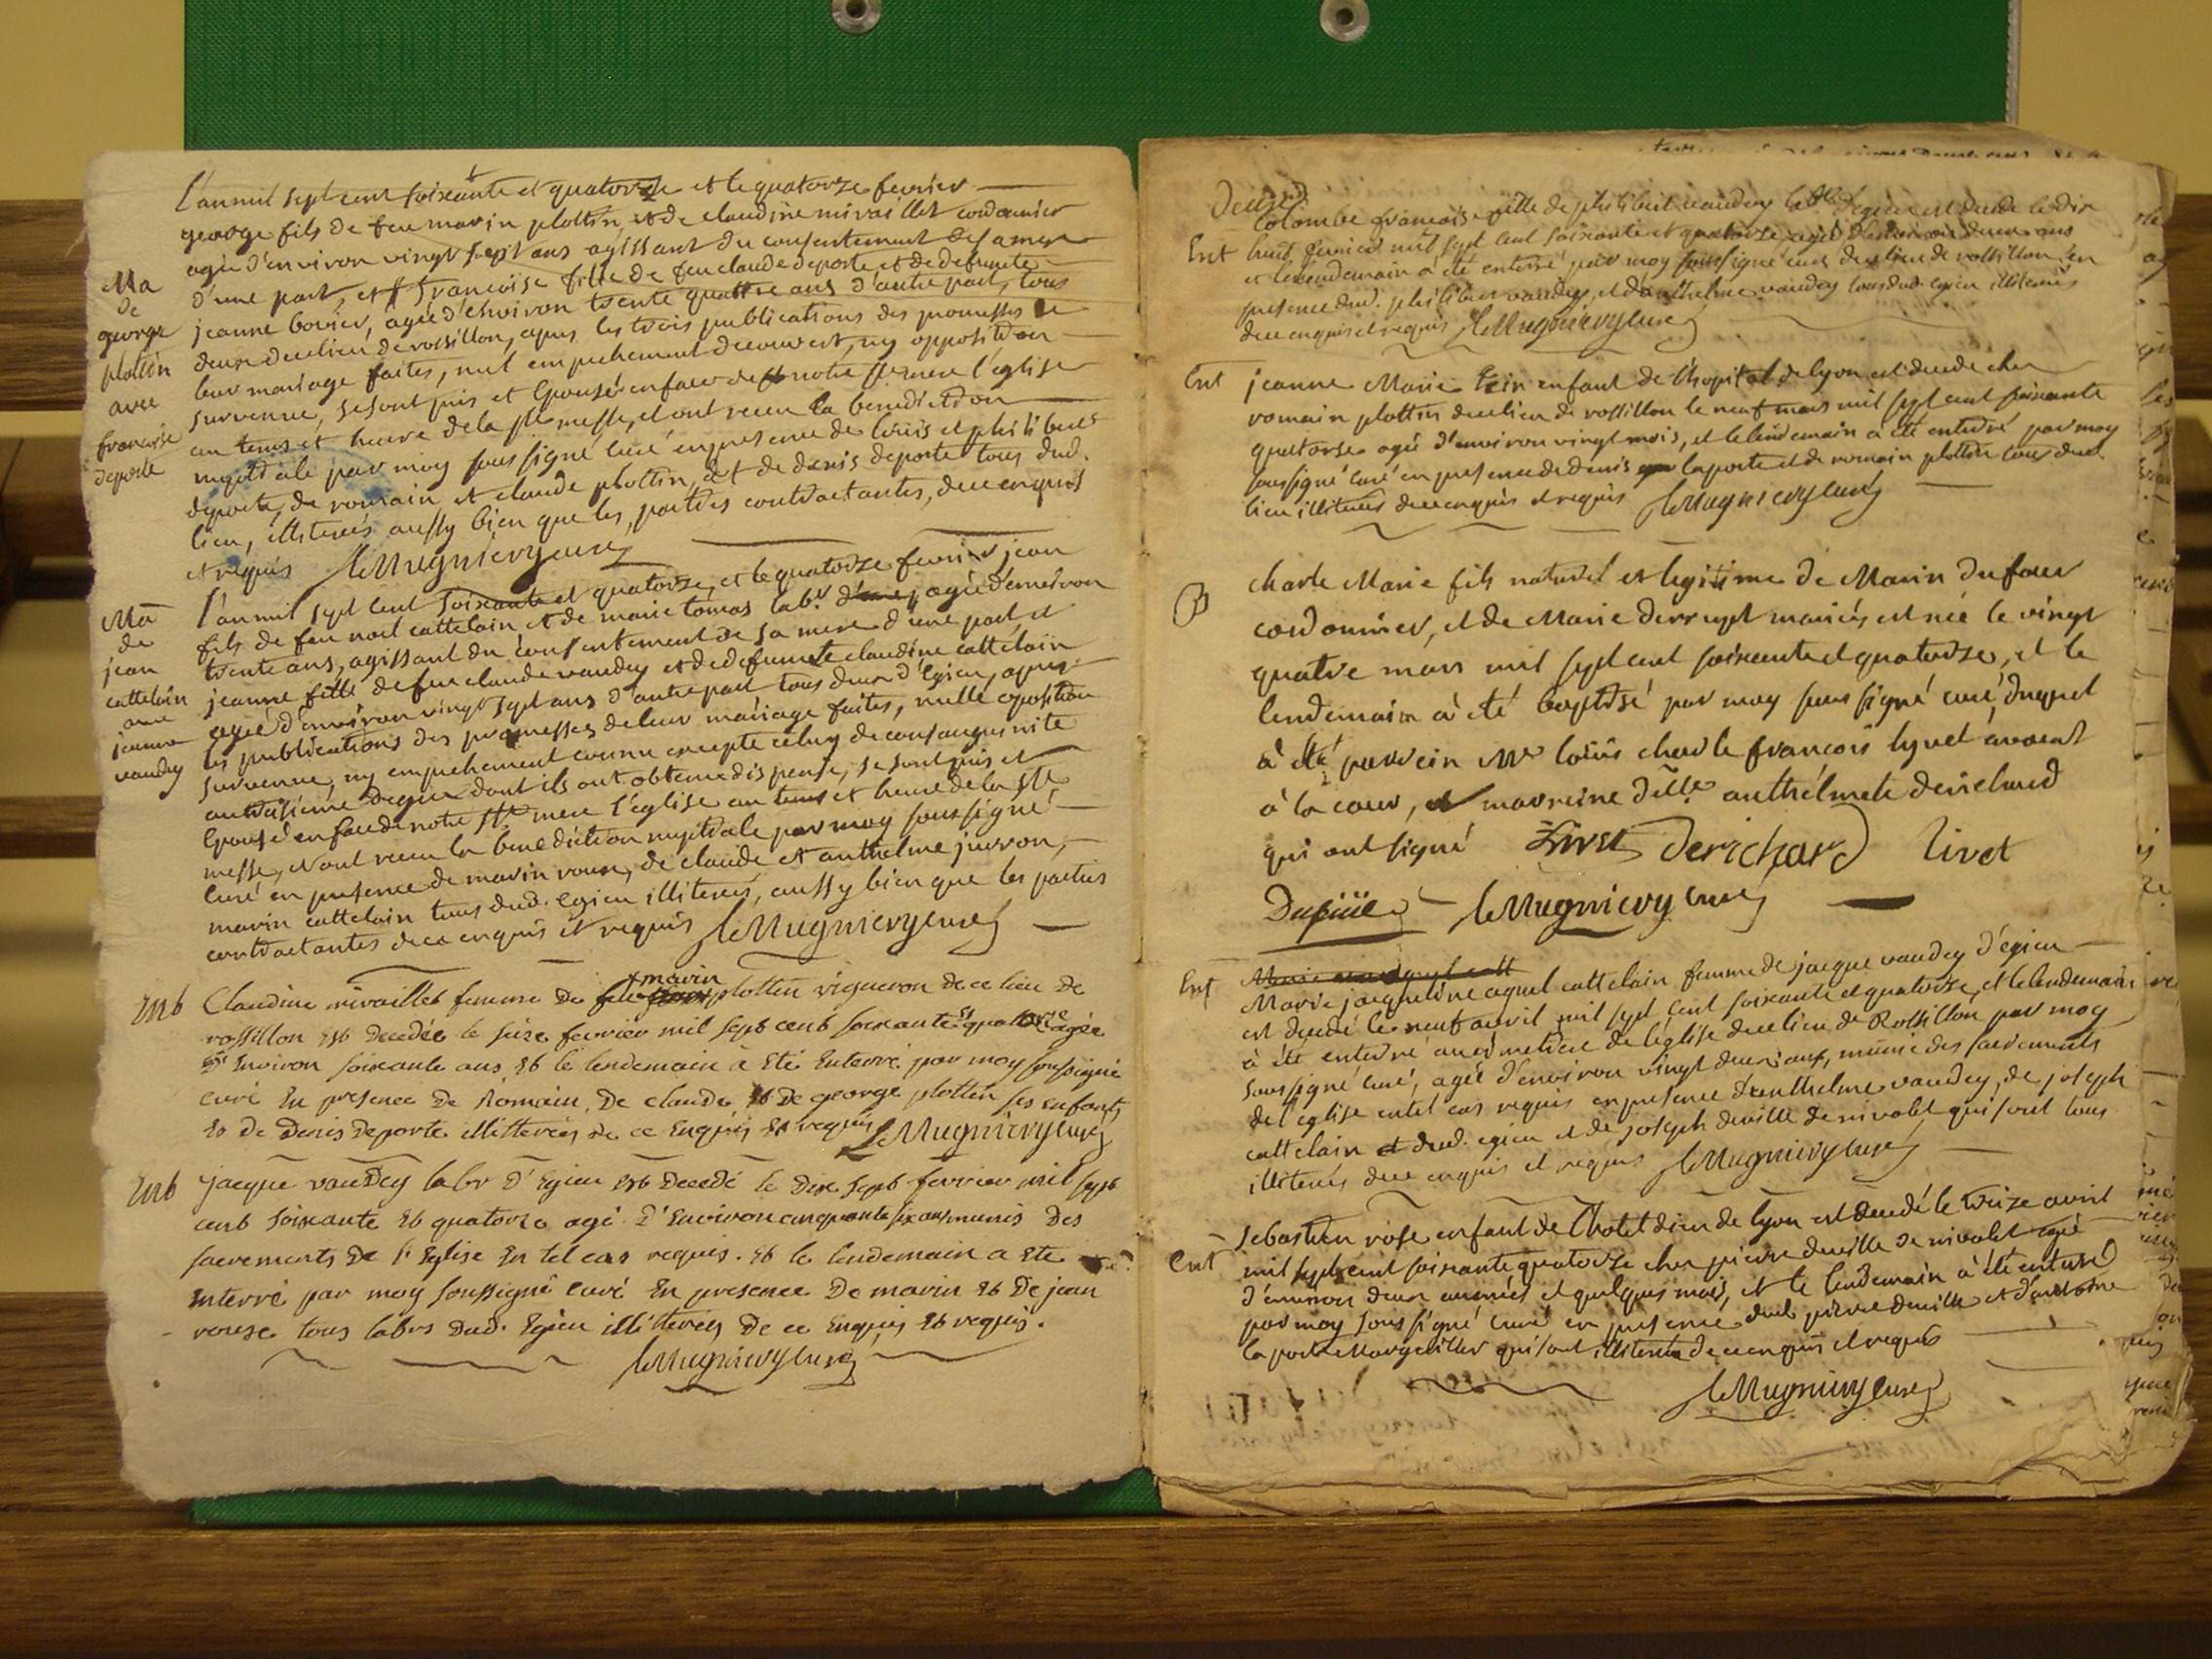 l'an mil sept cent soixante et quatorze et le quatorze fevrier
george fils de feu marin plottin et de claudine mivaillet cordonnier
agé d'environ vingt sept ans agissant du consentement de sa mere
d'une part, et francoise fille de feu claude deporte et de defuncte
jeanne bovier, agée d'environ trente quattre ans d'autre part, tous
deux de ce lieu de rossillon, apres les trois publications des promesses de
leur mariage faites, nul empechement decouvert, ny opposition
survenue, se sont pris et épousé en face de notre ste mere l'église
au tems et heure de la ste messe, et ont receu la benediction
nuptiale par moy soussigné curé en presence de louis et philibert
deporte, de romain et claude plottin, et de denis deporte tous dud.
lieu, illiterés aussy bien que les parties contractantes, de ce enquis
et requis leMugnieryCuré
Ma
de
george
plottin
avec
francoise
deporte
l'an mil sept cent soixante et quatorze, et le quatorze fevrier jean
fils de feu noel cattelain et de marie tomas labr. agé d'environ
trente ans, agissant du consentement de sa mere d'une part et
jeanne fille de feu claude vaudey et de defuncte claudine cattelain
agée d'environ vingt sept ans d'autre part tous deux d'égieu, apres
les publications des promesses de leur mariage faites, nulle oposition
survenue, ny empechement connu excepte celuy de consanguinité
au troisieme degré dont ils ont obtenu dispense, se sont pris et
épousé en face de notre ste mere l'église au tems et heure de la ste
messe, et ont receu la benediction nuptiale par moy soussigné
curé en presence de marin roux, de claude et anthelme juvron,
marin cattelain tous dud. egieu illiterés, aussy bien que les parties
contractantes de ce enquis et requis leMugnieryCuré
Ma
de
jean
cattelain
avec
jeanne
vaudey
Ent Claudine mivaillet femme de feu marin plottin vigneron de ce lieu de
rossillon est decedée le seize fevrier mil sept cent soixante et quatorze agée
d'Environ soixante ans et le lendemain à Eté Enterré par moy soussigné
curé En presence de Romain, De claude et De george plottin ses Enfants
et de Denis deporte illitterés de ce Enquis et requis LeMugnieryCuré
Ent jacque vaudey labr d'Egieu est Decedé le Dix sept fevrier mil sept
cent soixante et quatorze agé d'Environ cinquante six ans munis Des
sacrements de l'Eglise En tel cas requis. et le lendemain a Eté
Enterré par moy soussigné curé En presence De marin et De jean
rouse tous labrs Dud. Egieu illitterés De ce Enquis et requis.
leMugnieryCuré
Colombe francoise fille de philibert vaudey labr d'egieu est decedé le dix
Ent huit fevrier mil sept cent soixante et quatorze agée d'environ deux ans
et le lendemain a été enterré par moy soussigné curé de ce lieu de rossillon, en
presence dud. philibert vaudey, et d'anthelme vaudey tous dud. egieu illiterés
de ce enquis et requis leMugnieryCuré
Ent jeanne Marie enfant de l'hopital de lyon est decedé chez
romain plottin de ce lieu de rossillon le neuf mars mil sept cent soixante
quatorse agée d'environ vingt mois, et le lendemain a été enterré par moy
soussigné curé en presence de denis laporte et de romain plottin tous dud.
lieu illiterés de ce enquis et requis leMugnieryCuré
B charle Marie fils naturel et legitime de Marin dufour
cordonnier, et de Marie derrupt mariés est née le vingt
quatre mars mil sept cent soixante et quatorze, et le
lendemain à été baptisé par moy soussigné curé, duquel
à été parrein Mr loüis charle francois lyvet avocat
à la cour, et marreine delle anthelmete derichard
qui ont signé Livet Derichard livet
leMugnieryCuré
Ent
Marie jacqueline cattelain femme de jacque vaudey d'égieu
est decedé le neuf avril mil sept cent soixante et quatorze, et le lendemain
à été enterré au cimetiere de l'église de ce lieu de Rossillon par moy
soussigné curé, agée d'environ vingt deux ans, munie des sacrements
de l'eglise en tel cas requis en presence d'anthelme vaudey, de joseph
cattelain dud. egieu et de joseph deville de nivolet qui sont tous
illiterés de ce enquis et requis leMugnieryCuré
Ent Sebastien rose enfant de l'hotel dieu de lyon est decedé le treize avril
mil sept cent soixante quatorze chez pierre deville de nivolet agé
d'environ deux années et quelques mois, et le lendemain à été enterré
par moy soussigné curé en presence dud. pierre deville et d'antoine
laporte Margeiller qui sont illiterés de ce enquis et requis
leMugnieryCuré